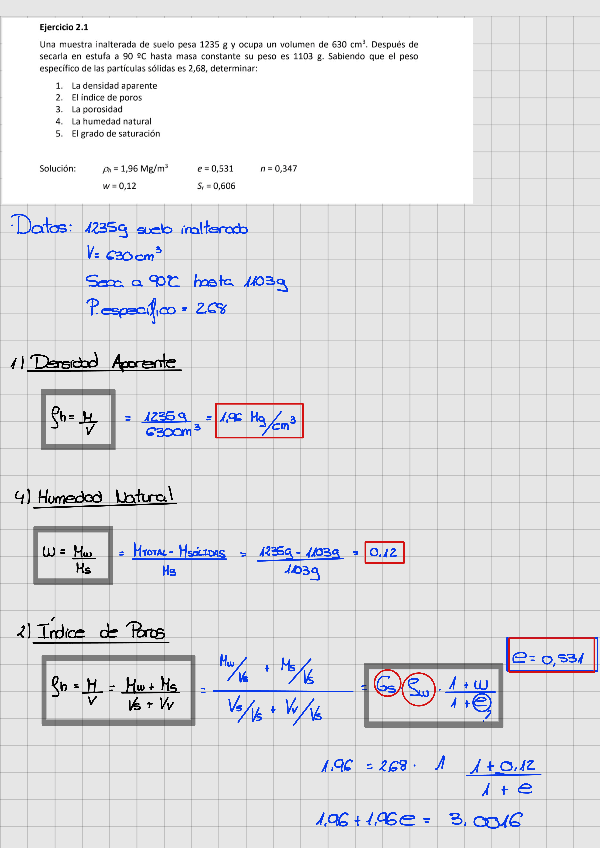 Ejercicio 2.1
Una muestra inalterada de suelo pesa 1235 g y ocupa un volumen de 630 cm³. Después de
secarla en estufa a 90 ºC hasta masa constante su peso es 1103 g. Sabiendo que el peso
específico de las partículas sólidas es 2,68, determinar:
1. La densidad aparente
2. El índice de poros
3. La porosidad
4. La humedad natural
5. El grado de saturación
Solución: ρh = 1,96 Mg/m³ e = 0,531 n = 0,347
w = 0,12 Sr = 0,606
Datos: 1235g suelo inalterado
V = 630 cm³
Seca a 90ºC hasta 1103g
P. específico = 2.68
1) Densidad Aparente
ρh = M/V = 1235g/630cm³ = 1,96 Mg/cm³
4) Humedad Natural
ω = Mw/Ms = MTOTAL - MSÓLIDAS/Ms = 1235g - 1103g/1103g = 0.12
2) Índice de Poros
e = 0,531
ρh = M/V = Mw + Ms/Vs + Vv = Mw/Vs + Ms/Vs / Vs/Vs + Vv/Vs = Gs ρw · 1 + ω/1 + e
1.96 = 2.68 · 1 1 + 0.12/1 + e
1.96 + 1.96e = 3.0016